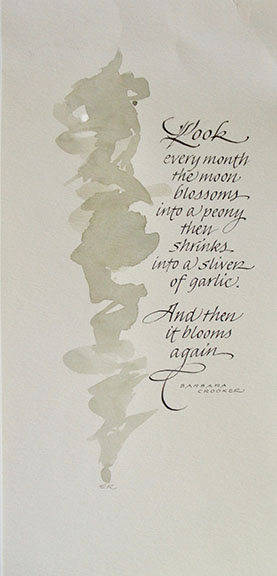 Look
every month
the moon
blossoms
into a peony
then
shrinks
into a sliver
of garlic.
And then
it blooms
again
BARBARA
CROOKER